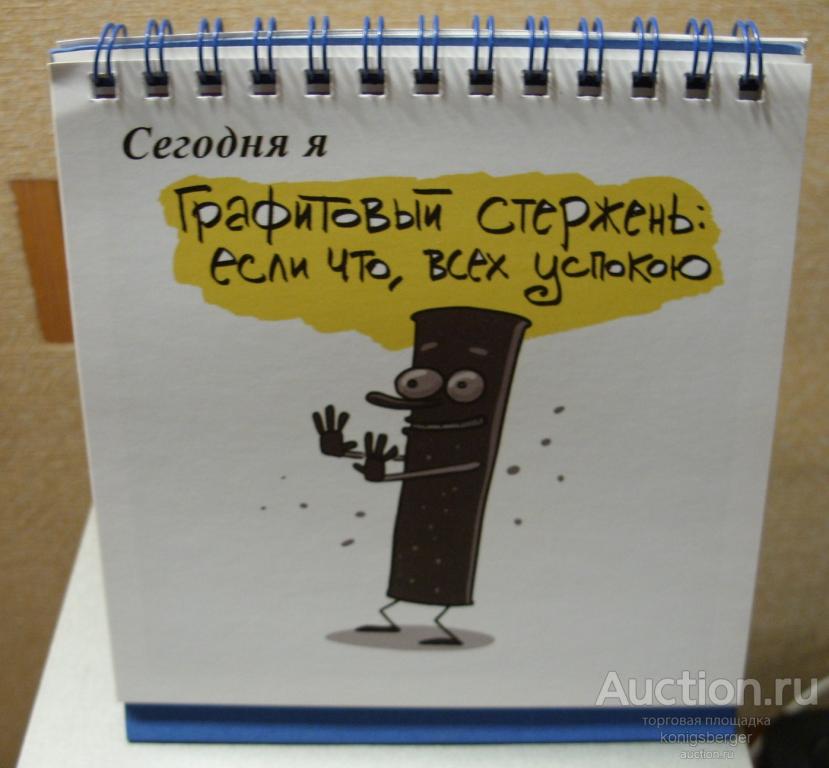 Сегодня я
Графитовый стержень:
если что, всех успокою
Auction.ru
торговая площадка
konigsberger
auction.ru